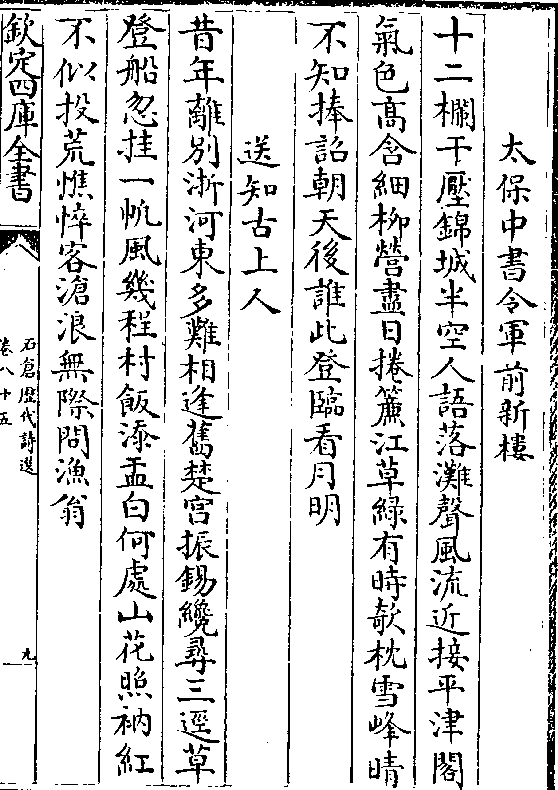 太保中書令軍前新樓
十二欄干壓錦城半空人語落灘聲風流近接平津閣
氣色高含細柳營盡日捲簾江草綠有時欹枕雪峰晴
不知捧詔朝天後誰此登臨看月明
送知古上人
昔年離別浙河東多難相逢舊楚宮振錫纔尋三逕草
登船忽挂一帆風幾程村飯添盂白何處山花照衲紅
不似投荒憔悴客滄浪無際問漁翁
欽定四庫全書
石倉歷代詩選
卷八十五
九